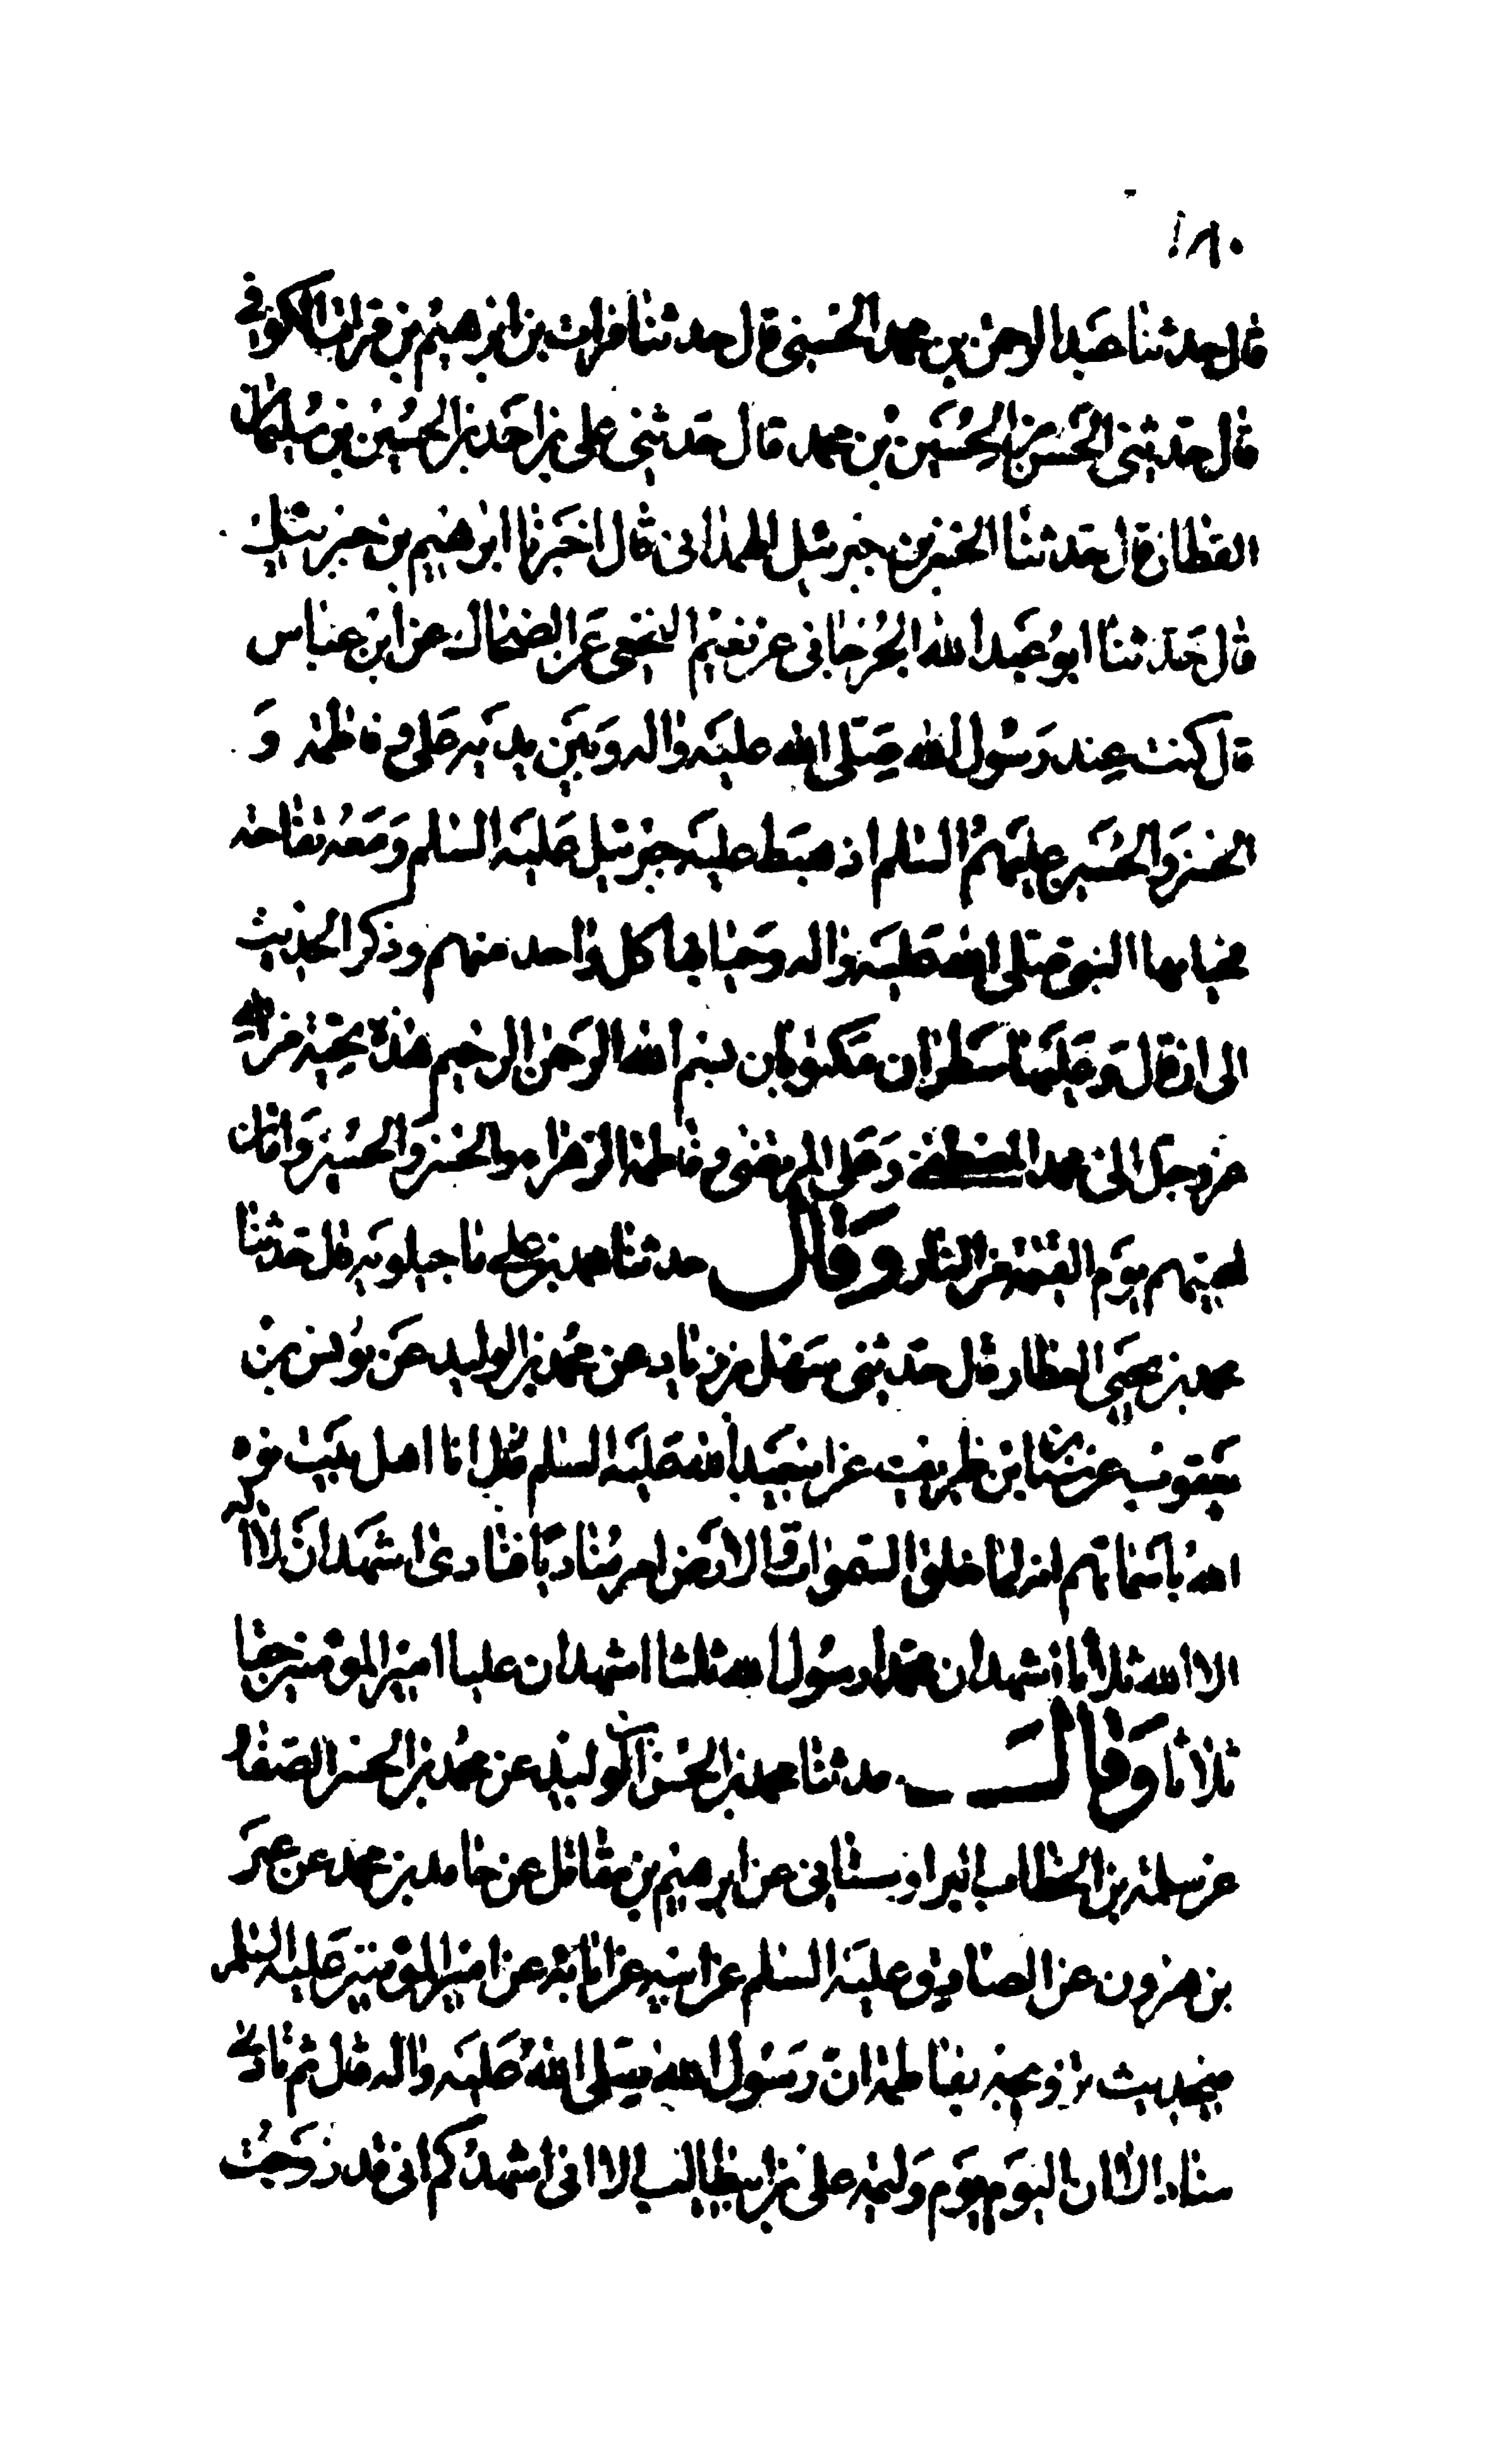 ١٨٠
قال حدثنا عبد الرحمن بن محمد الحسني قال حدثنا فرات بن ابرهيم بن فرات الكوفي
قال حدثني الحسن بن الحسين بن محمد قال حدثني علي بن احمد بن الحسين بن سليمان
القطان قال حدثنا الحسن بن جبرئيل الهمداني قال اخبرنا ابرهيم بن جبرئيل
قال حدثنا ابو عبد الله الجرجاني عن نعيم النخعي عن الضحاك عن ابن عباس
قال كنت عند رسول الله صلى الله عليه واله وبين يديه علي و فاطمة و
الحسن والحسين عليهم السلم اذ هبط عليه جبرئيل عليه السلم ومعه تفاحة
فحيا بها النبي صلى الله عليه واله وحيا بها كل واحد منهم وذكر الحديث
الى ان قال وعليها سطران مكتوبان بسم الله الرحمن الرحيم هذه تحية من الله
عز وجل الى محمد المصطفى وعلي المرتضى وفاطمة الزهراء والحسن والحسين وامان
لمحبيهم يوم القيمة من النار وقال حدثنا محمد بن علي ماجيلويه قال حدثنا
محمد بن يحيى العطار قال حدثني سهل بن زياد عن محمد بن الوليد عن يونس بن
يعقوب عن سنان بن طريف عن ابيعبد الله عليه السلم قال انا اهل بيت نوه
الله باسمائهم انه لما خلق السموات والارض امر مناديا فنادى اشهد ان لا اله
الا الله ثلاثا اشهد ان محمدا رسول الله ثلثا اشهد ان عليا امير المؤمنين حقا
ثلاثا وقال حدثنا محمد بن الحسن بن الوليد عن محمد بن الحسن الصفار
عن سلمة بن الخطاب البراوستاني عن ابرهيم بن مقاتل عن حامد بن محمد عن عمر
بن هرون عن الصادق عليه السلم عن ابيه عن ابائه عن امير المؤمنين عليه السلم
فيحديث تزويجه بفاطمة ان رسول الله صلى الله عليه واله قال ثم نادى
مناد الا ان اليوم يوم وليمة علي بن ابيطالب الا اني اشهدكم اني قد زوجت